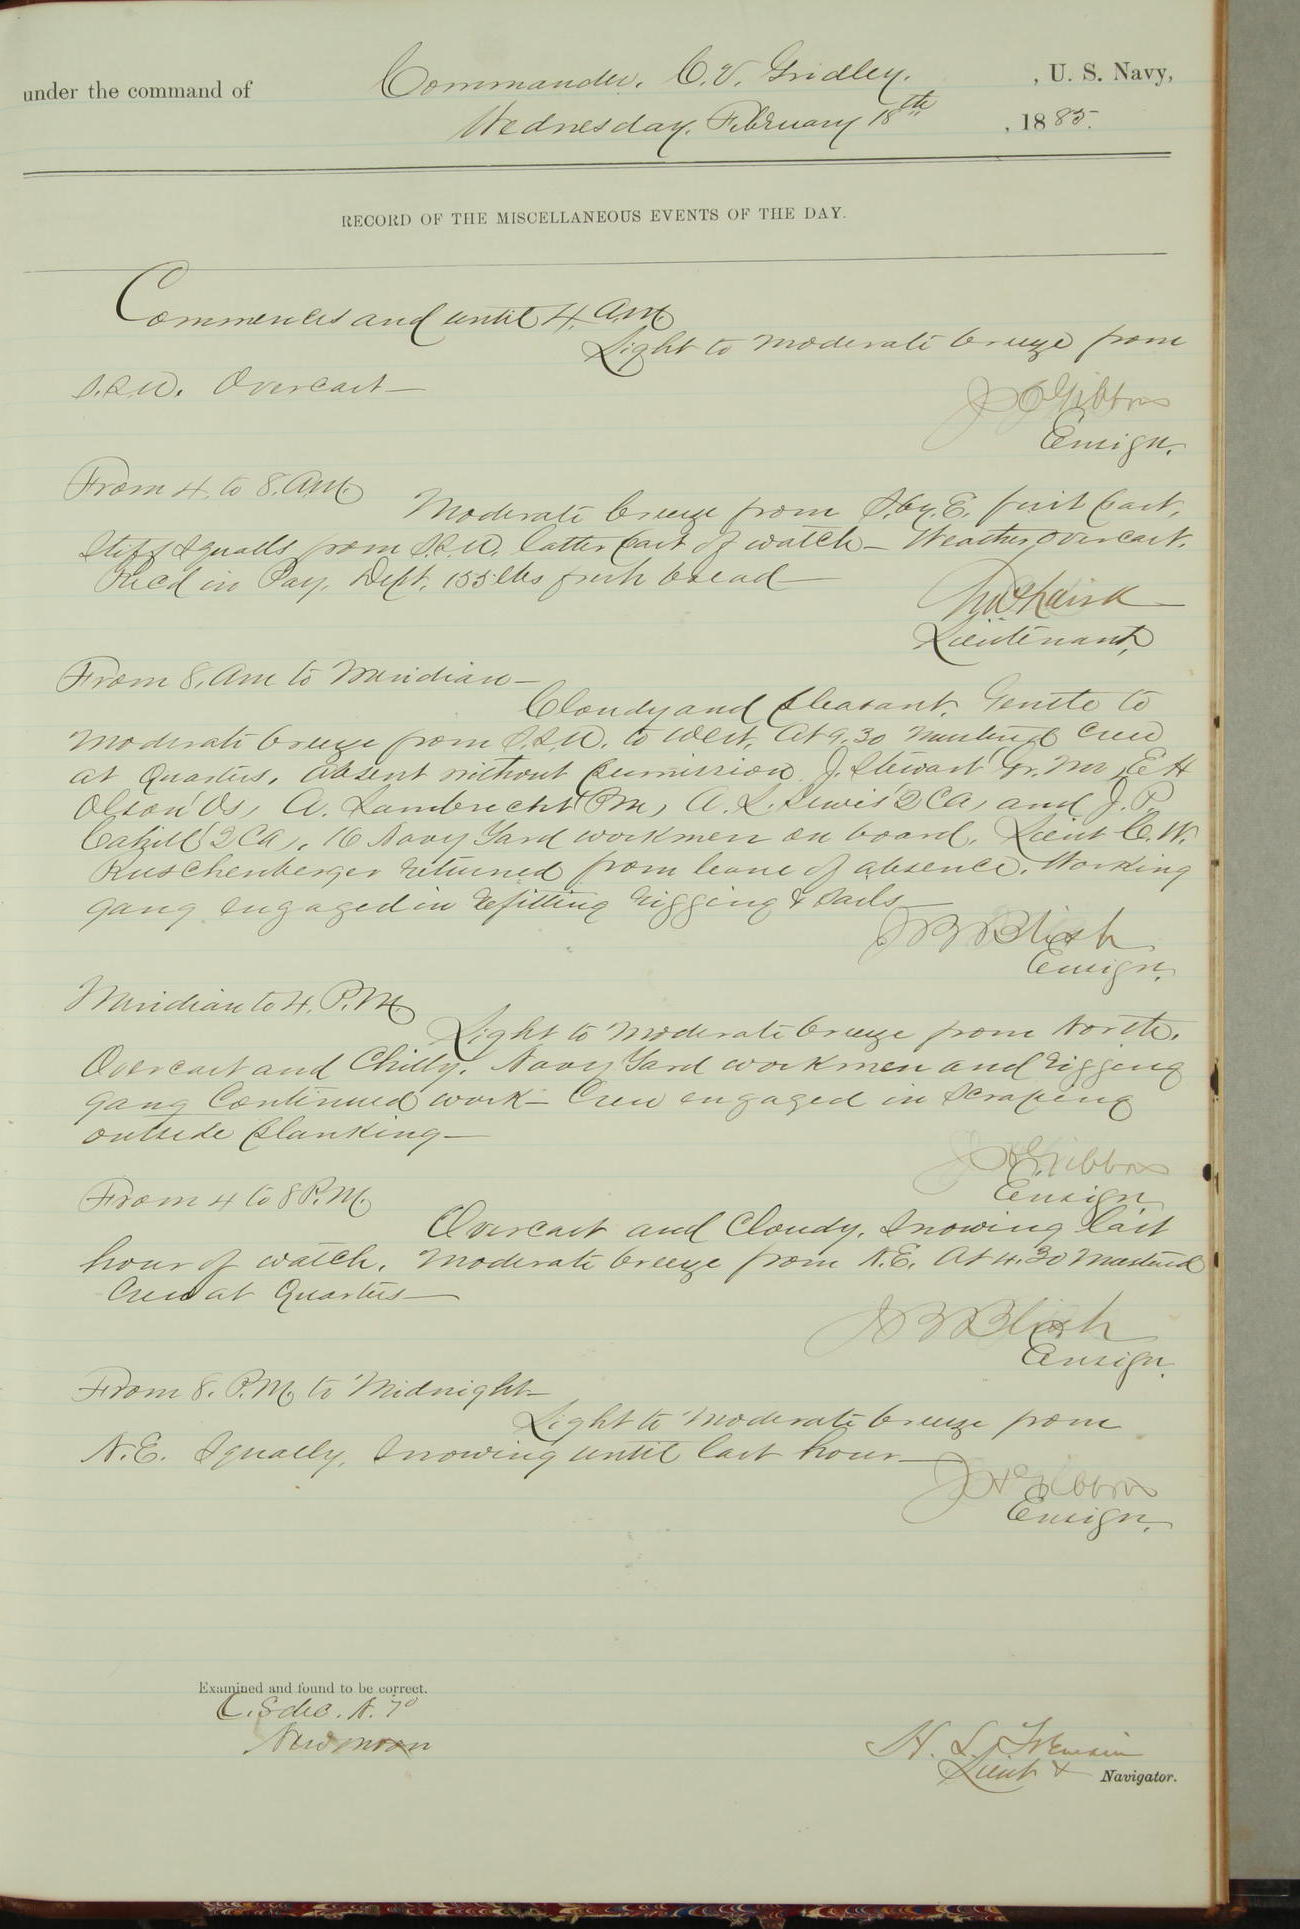 under the command of Commander. C. V. Gridley. , U. S. Navy,
Wednesday. February 18th , 1885.
RECORD OF THE MISCELLANEOUS EVENTS OF THE DAY.
Commences and until 4. A.M.
Light to moderate breeze from
S.S.W. Overcast—
Gibbons
Ensign.
From 4. to 8. A.M.
Moderate breeze from S. by. E. first part,
Stiff squalls from S.S.W. latter part of watch— Weather, overcast.
Rec'd in Pay. Dept. 155 lbs fresh bread—
Lieutenant,
From 8. Am to Meridian—
Cloudy and pleasant. Gentle to
moderate breeze from S.S.W. to West, At 9.30 mustered crew
at Quarters, absent without permission J. Stewart Gr. Mr, E H
Olson Os, A. Lambrecht Pm, A. L. Lewis 2 Ca, and J. P.
Cahill 2 Ca,. 16 Navy Yard workmen on board. Lieut C. W.
Ruschenberger returned from leave of absence. Working
gang engaged in refitting rigging & sails—
J B Blish
Ensign.
Meridian to 4. P.M.
Light to moderate breeze from North.
Overcast and Chilly. Navy Yard workmen and rigging
gang Continued work— Crew engaged in scraping
outside planking—
J H Gibbons
Ensign
From 4 to 8 P.M.
Overcast and Cloudy. Snowing last
hour of watch. Moderate breeze from N.E. At 4.30 Mustered
Crew at Quarters—
J B Blish
Ensign.
From 8. P.M. to Midnight—
Light to moderate breeze from
N.E. Squally, snowing until last hour—
J H Gibbons
Ensign.
Examined and found to be correct.
H. L.
Lieut & Navigator.